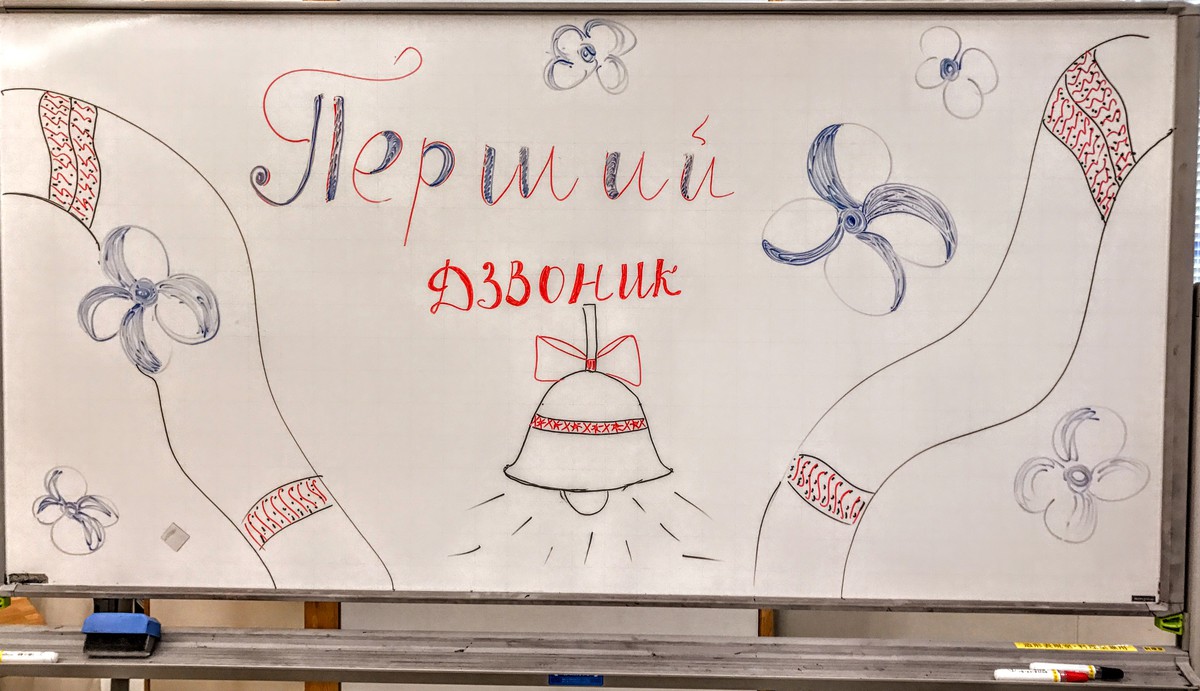 Перший
дзвоник